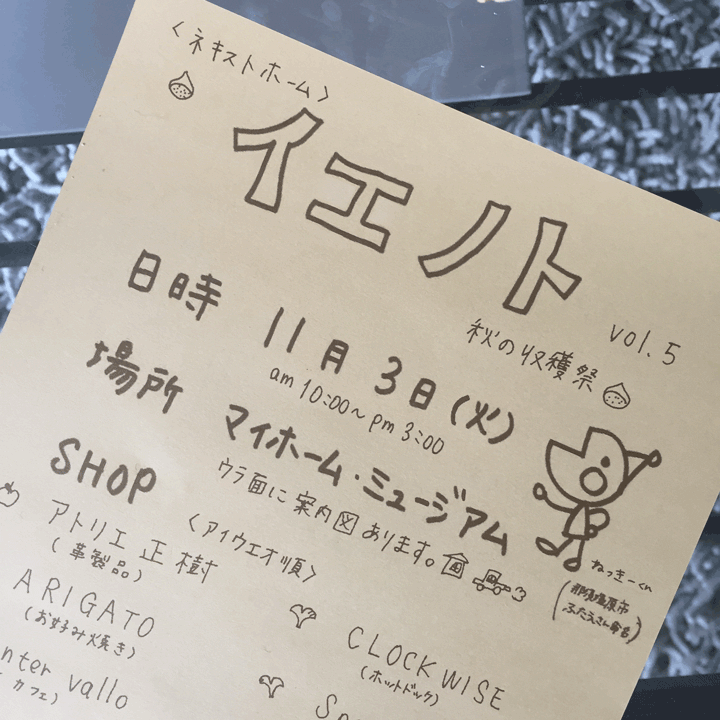 〈ネキストホーム〉
イエノト
vol.5
秋の収穫祭
日時 11月3日(火)
am 10:00~pm 3:00
場所 マイホーム・ミュージアム
ウラ面に案内図あります。
SHOP 〈アイウエオ順〉
アトリエ 正樹
(革製品)
ARIGATO
(お好み焼き)
nter vallo
カフェ)
CLOCK WISE
(ホットドック)
ねっきーくん
(那須塩原市
ふたえさん命名)